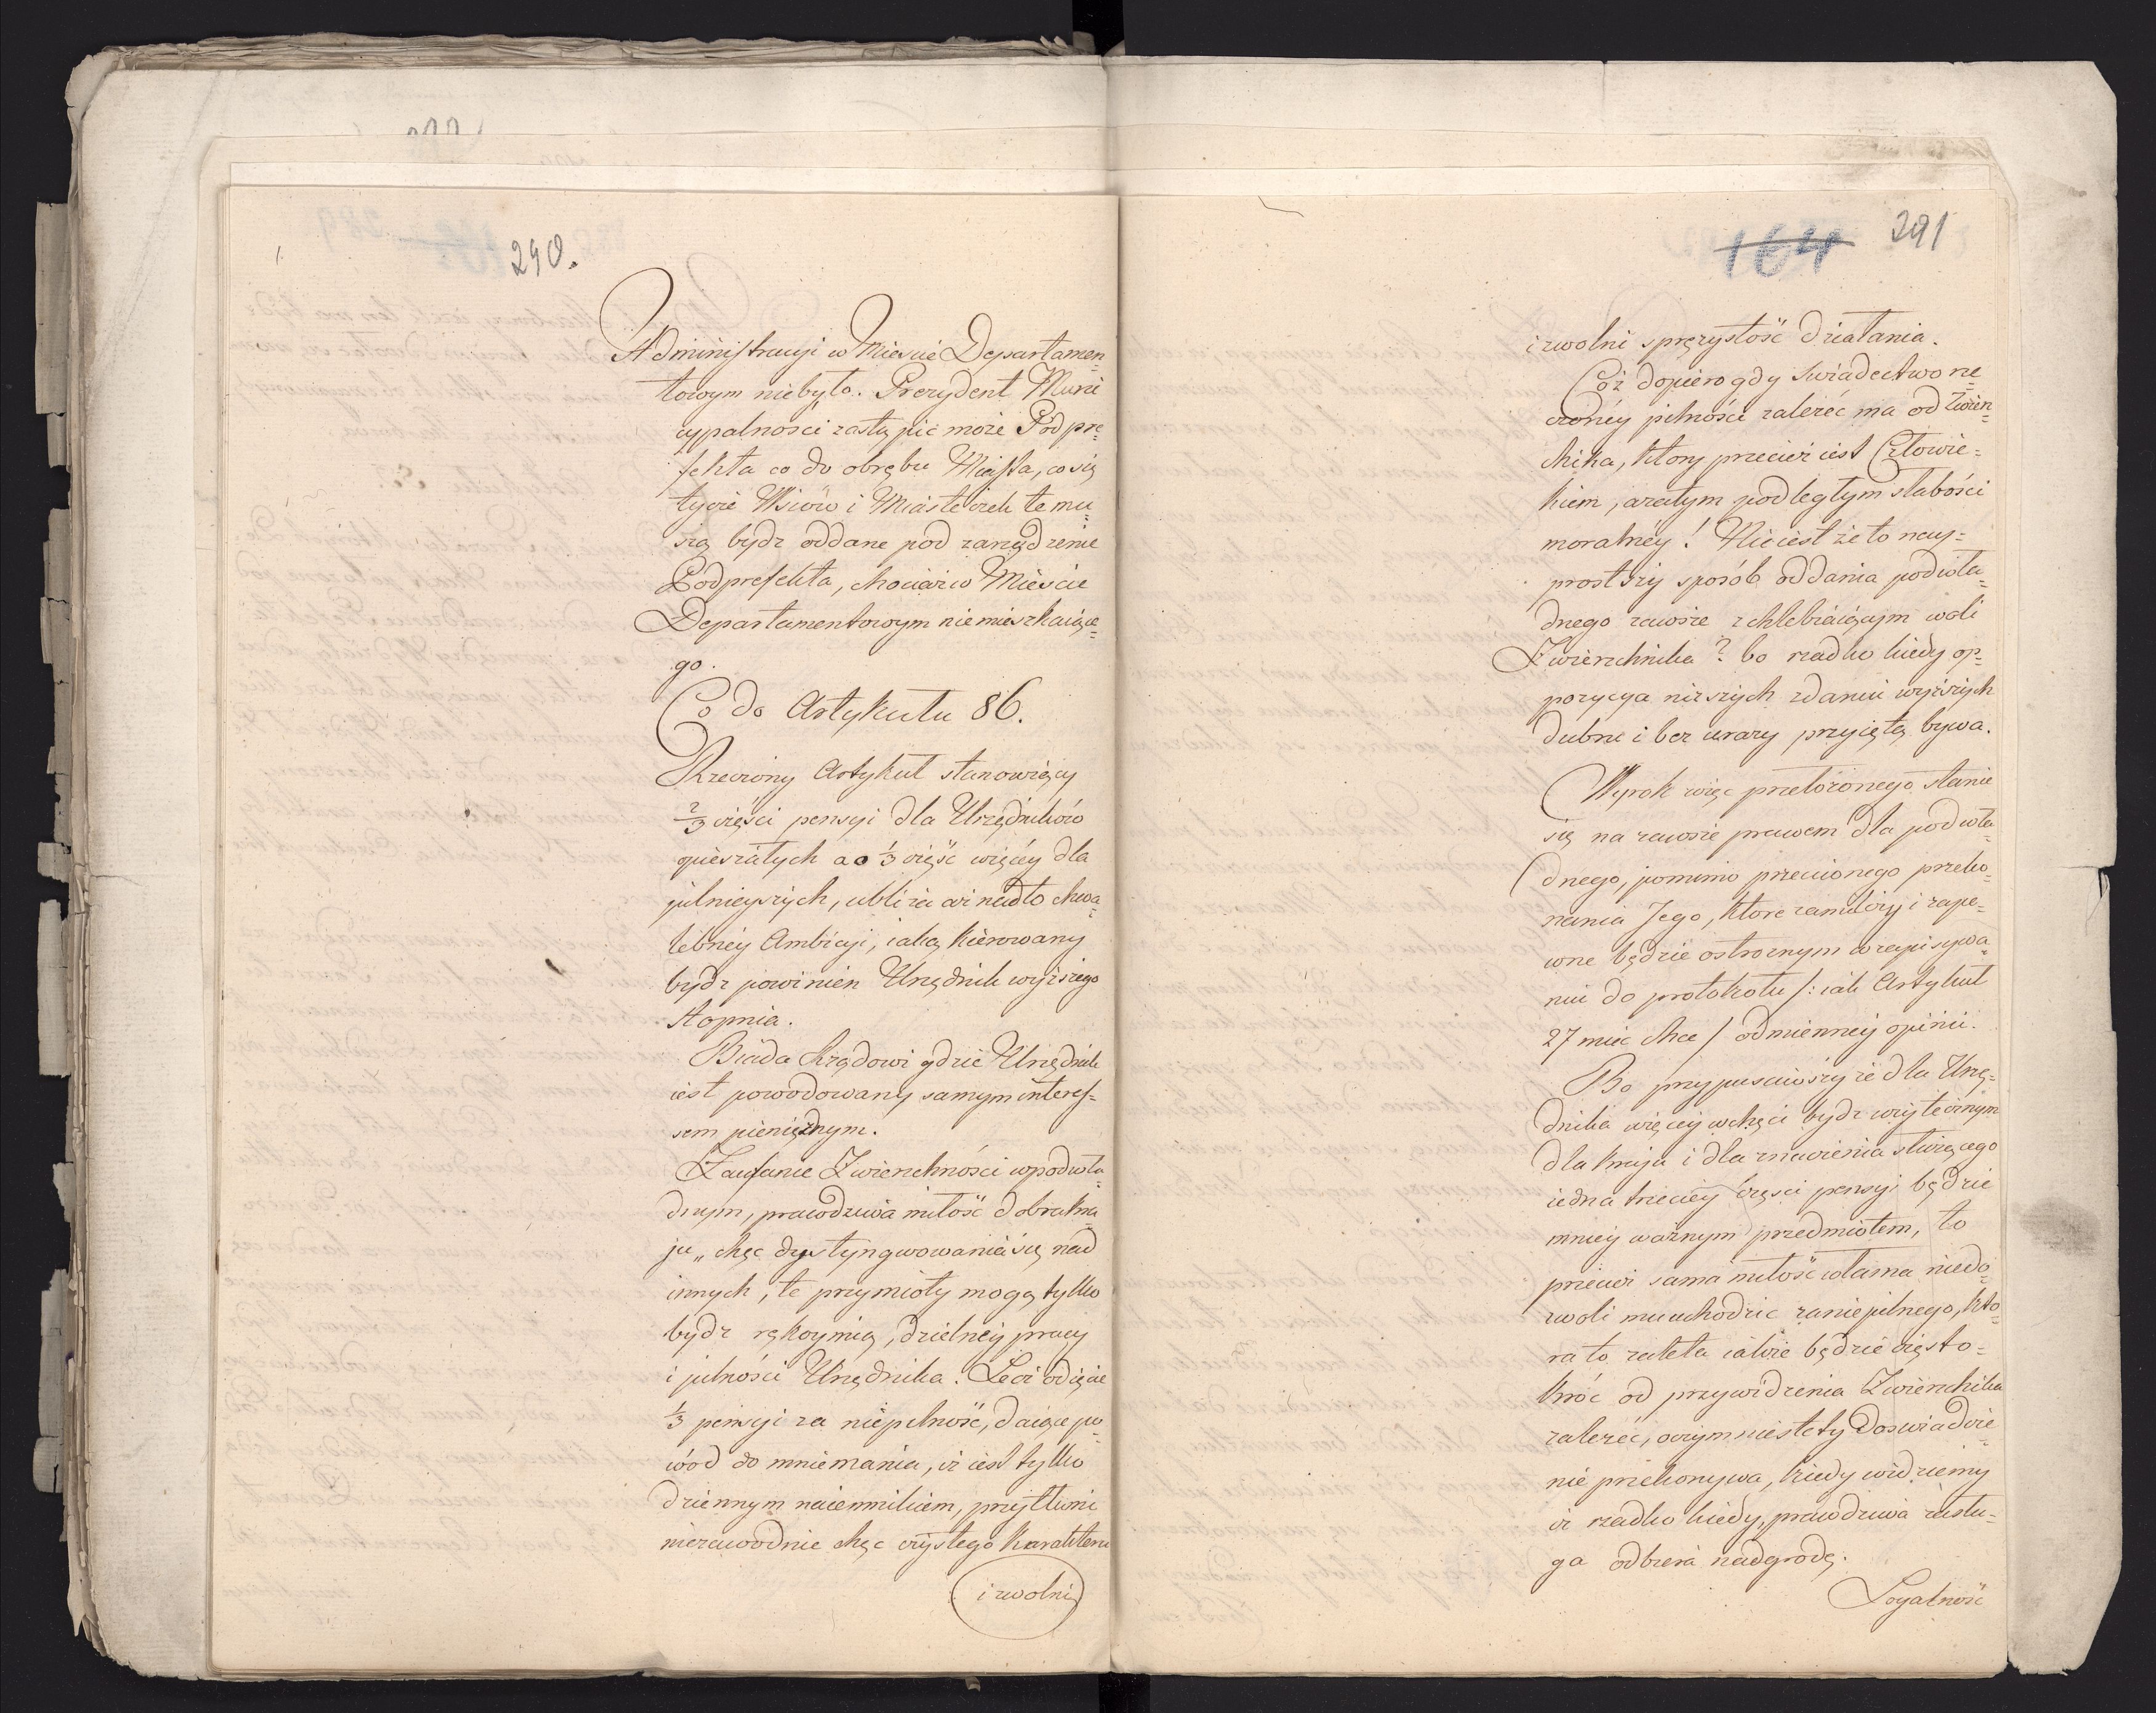 290.
Administracyi w Mieście Departamen=
towym niebyło. Prezydent Muni
cypalności zastąpić może Podpre=
fekta co do obrębu Miasta, co się
tycze Wsiów i Miasteczek te mu=
szą bydz oddane pod zarządzenie
Podprefekta, chociaż w Mieście
Departamentowym niemieszkaiące=
go.
Co do Artykułu 86.
Rzeczony Artykuł stanowiący
2/3 części pensyi dla Urzędników
opieszałych a o 1/3 część więcéy dla
pilnieyszych, ubliża aż nadto chwa=
lebnéy Ambicyi, iaką kierowany
bydz powinien Urzędnik wyższego
stopnia.
Biada Rządowi gdzie Urzędnik
iest powodowany samym interes=
sem pieniężnym.
Zaufanie Zwierzchności w podwła=
dnym, prawdziwa miłość dobra kra=
ju„ chęć dystyngwowania się nad
innych, te przymioty mogą tylko
bydz rękoymią, dzielnéy pracy
i pilności Urzędnika. Lecz odięcie
1/3 pensyi za niepilność, daiąc po=
wód do mniemania, iż iest tylko
dziennym naiemnikiem, przytłumi
niezawodnie chęć czystego karakteru
i zwolni
164 291
i zwolni sprężystość działania.
Cóż dopiero gdy świadectwo rze=
czonéy pilności zależeć ma od Zwierz=
chnika, który przecież iest Człowie=
kiem, a zatym podległym słabości
moralnéy! Nie iest że to nay=
prostszy sposób oddania podwła=
dnego zawsze schlebiaiącym woli
Zwierzchnika? bo rzadko kiedy op=
pozycya niższych zdaniu wyższych
dobrze i bez urazy przyiętą bywa.
Wyrok więc przełożonego stanie
się na zawsze prawem dla podwła=
dnego, pomimo przeciwnego przeko=
nania Jego, które zamilczy i zape=
wne będzie ostrożnym w zapisywa=
niu do protokołu /: iak Artykuł
27 mieć chce / odmiennéy opinii.
Bo przypuściwszy że dla Urzę=
dnika więcéy w chęci bydz użytecznym
dla kraju i dla znaczenia służącego
iedna trzeciéy części pensyi będzie
mniéy ważnym przedmiotem, to
przecież sama miłość własna niedo=
zwoli mu uchodzić za niepilnego, któ=
ra to zaleta iakże będzie często=
kroć od przywidzenia Zwierzchnika
zależeć, o czym niestety Doświadcze=
nie przekonywa, kiedy widziemy
iż rzadko kiedy, prawdziwa zasłu=
ga odbiera nadgrodę.
Logalność